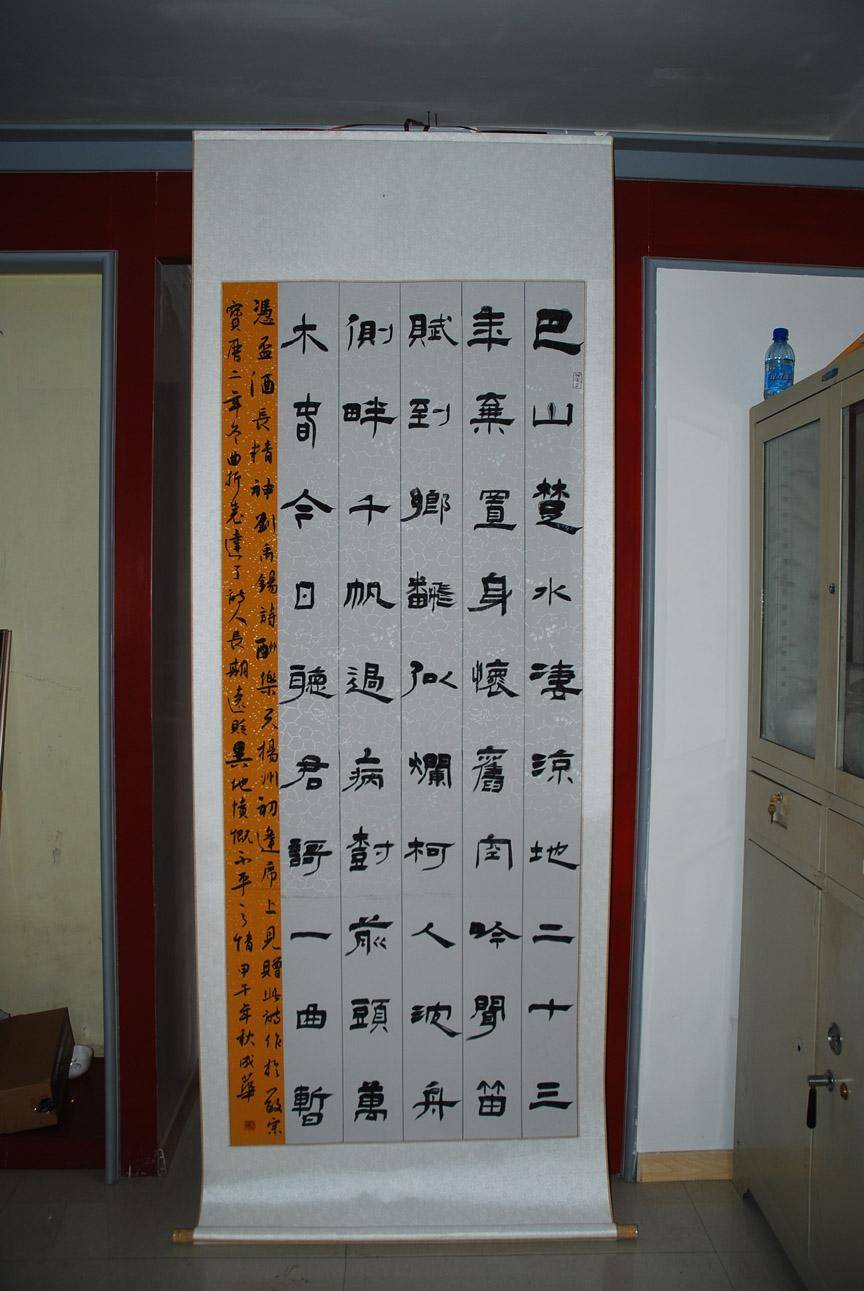 巴山楚水凄涼地二十三
年棄置身懷舊空吟聞笛
賦到鄉飜似爛柯人沈舟
側畔千帆過病樹前頭萬
木春今日聽君謌一曲暫
憑盃酒長精神劉禹錫詩酬樂天揚州初逢席上見贈此詩作於敬宗
寶曆二年冬曲折表達了詩人長期遠貶異地憤慨不平之情甲午年秋成華